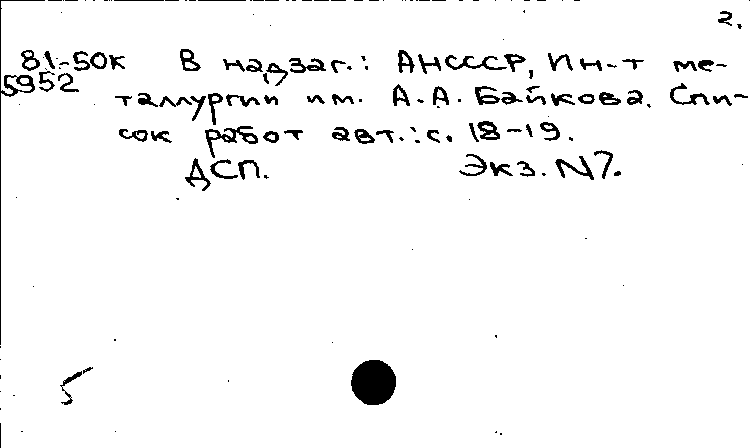 2.
81-50к В надзаг.: АНСССР, Ин-т ме-
5952 таллургии им. А.А. Байкова. Спи-
сок работ авт.: с. 18-19.
ДСП. Экз. N7.
5